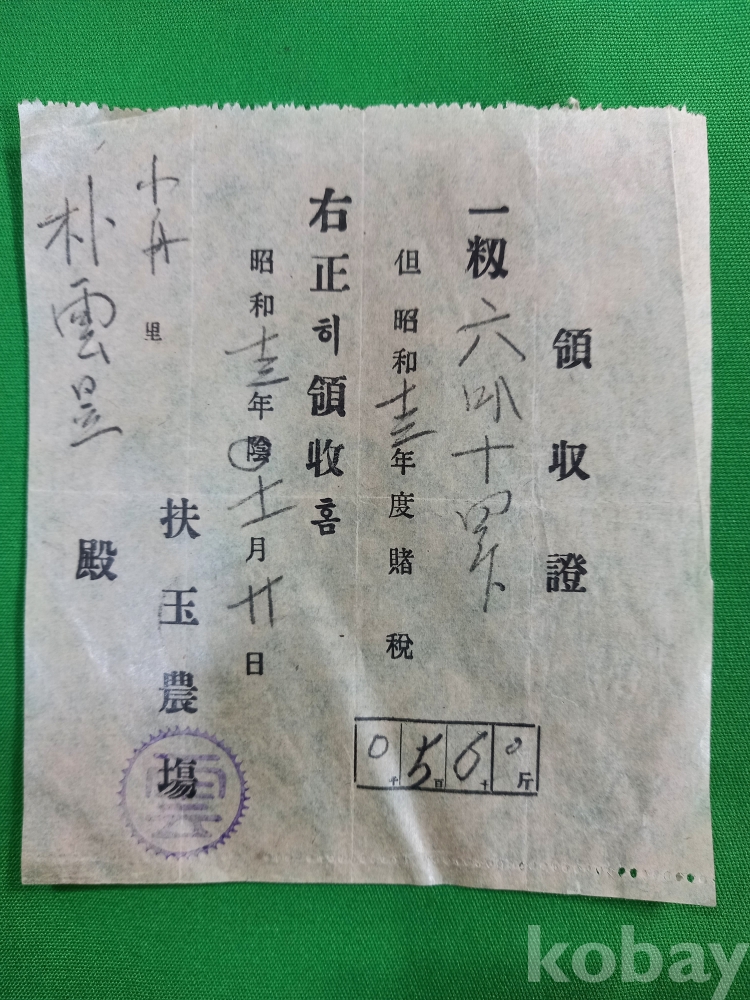 領収證
一籾 六叺十四斤
但昭和十三年度賭稅
0千5百6十0斤
右正히領收홈
昭和十三年陰十一月廿日
扶玉農場
雲
里
朴雲
殿
kobay